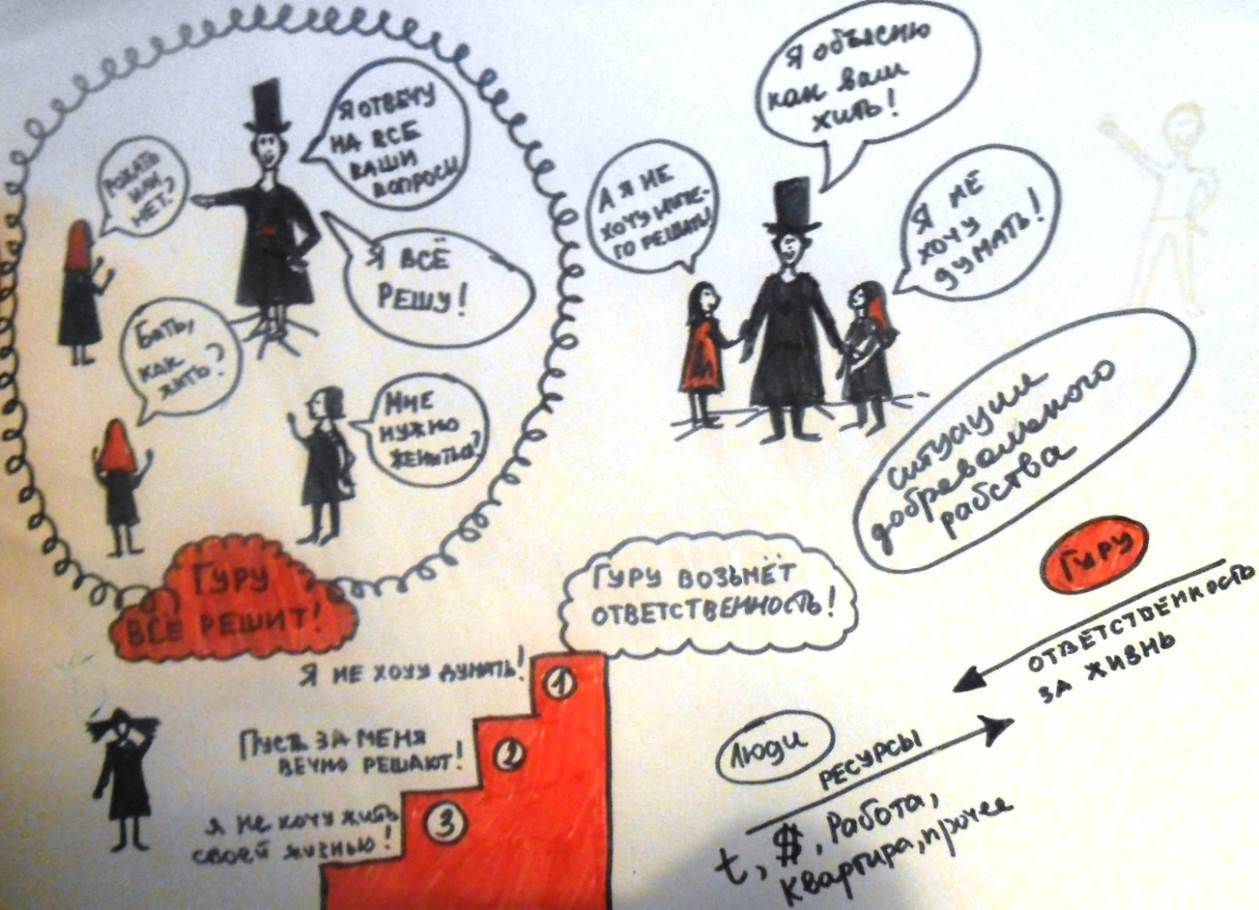 Я ОТВЕЧУ
НА ВСЕ
ВАШИ
ВОПРОСЫ
РОЖАТЬ
ИЛИ
НЕТ?
Я ВСЁ
РЕШУ!
Бать,
как
жить?
Мне
нужно
жениться?
ГУРУ
ВСЕ РЕШИТ!
Я объясню
как вам
жить!
А Я НЕ
ХОЧУ НИЧЕ-
ГО РЕШАТЬ!
Я НЕ
ХОЧУ
ДУМАТЬ!
ситуации
добревольного
рабства
ГУРУ ВОЗЬМЁТ
ОТВЕТСТВЕННОСТЬ!
Я НЕ ХОЧУ ДУМАТЬ!
1
ПУСТЬ ЗА МЕНЯ
ВЕЧНО РЕШАЮТ!
2
Я НЕ ХОЧУ ЖИТЬ
СВОЕЙ ЖИЗНЬЮ!
3
ГУРУ
ОТВЕТСТВЕННОСТЬ
ЗА ЖИЗНЬ
Люди
РЕСУРСЫ
t, $, Работа,
Квартира, прочее